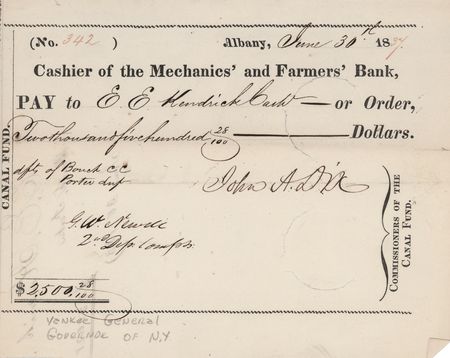 (No. 342 ) Albany, June 30th 1837.
Cashier of the Mechanics' and Farmers' Bank,
PAY to E E Kendrick Cashr — or Order,
Two thousand five hundred 28/100 — Dollars.
dfts of Bouck CC
Porter
John A. Dix
G. W. Newell
2nd Dep. Compr
$2,500, 28/100
CANAL FUND.
COMMISSIONERS OF THE
CANAL FUND.
YANKEE GENERAL
GOVERNOR OF N.Y.